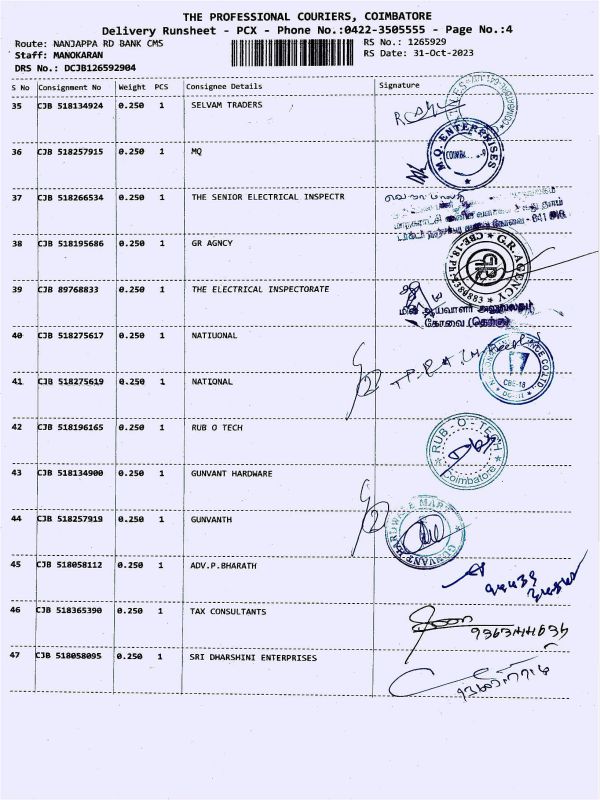 THE PROFESSIONAL COURIERS, COIMBATORE
Delivery Runsheet - PCX - Phone No.:0422-3505555 - Page No.:4
Route: NANJAPPA RD BANK CMS
RS No.: 1265929
Staff: MANOKARAN
RS Date: 31-Oct-2023
DRS No.: DCJB126592904
S No Consignment No Weight PCS Consignee Details Signature
35 CJB 518134924 0.250 1 SELVAM TRADERS
36 CJB 518257915 0.250 1 MQ
M.Q. ENTERPRISES
37 CJB 518266534 0.250 1 THE SENIOR ELECTRICAL INSPECTR
38 CJB 518195686 0.250 1 GR AGNCY
G.R. AGENCY
39 CJB 89768833 0.250 1 THE ELECTRICAL INSPECTORATE
மின் ஆய்வாளர் அலுவலகம்
கோவை (தெற்கு)
40 CJB 518275617 0.250 1 NATIUONAL
41 CJB 518275619 0.250 1 NATIONAL
CBE-18
42 CJB 518196165 0.250 1 RUB O TECH
RUB-O-TECH
Coimbatore
43 CJB 518134900 0.250 1 GUNVANT HARDWARE
44 CJB 518257919 0.250 1 GUNVANTH
GUNVANT HARDWARE MART
45 CJB 518058112 0.250 1 ADV.P.BHARATH
46 CJB 518365390 0.250 1 TAX CONSULTANTS
47 CJB 518058095 0.250 1 SRI DHARSHINI ENTERPRISES